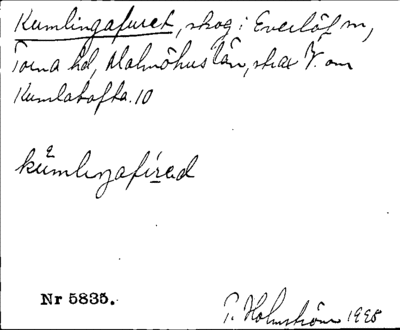 Kumlingafuret, skog i Everlöf sn,
Torna hd, Malmöhus län, strax V. om
Kumlatofta. 10
kumlingafired
Nr 5835.
P. Holmström 1998